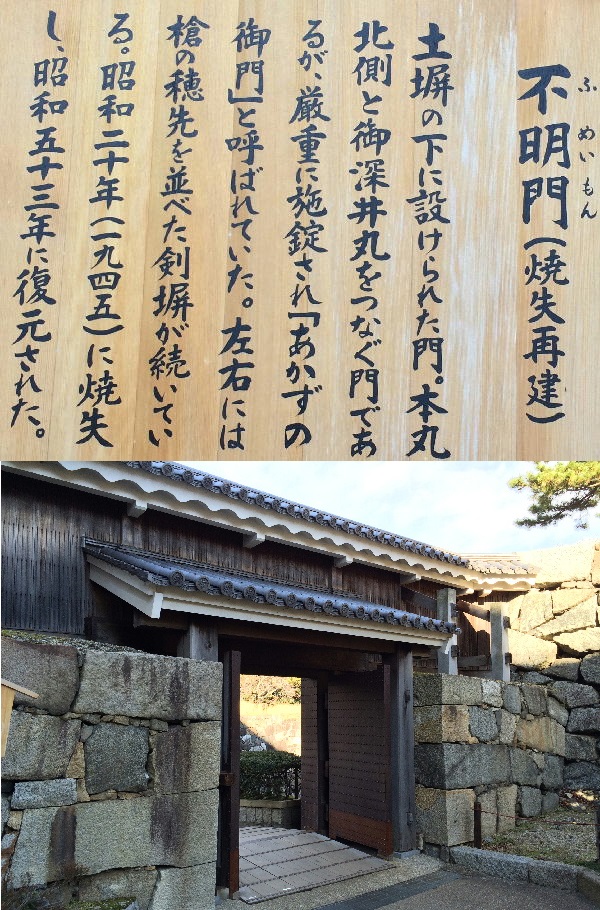 不明門（焼失再建）
ふめいもん
土塀の下に設けられた門。本丸
北側と御深井丸をつなぐ門であ
るが、厳重に施錠され「あかずの
御門」と呼ばれていた。左右には
槍の穂先を並べた剣塀が続いてい
る。昭和二十年（一九四五）に焼失
し、昭和五十三年に復元された。